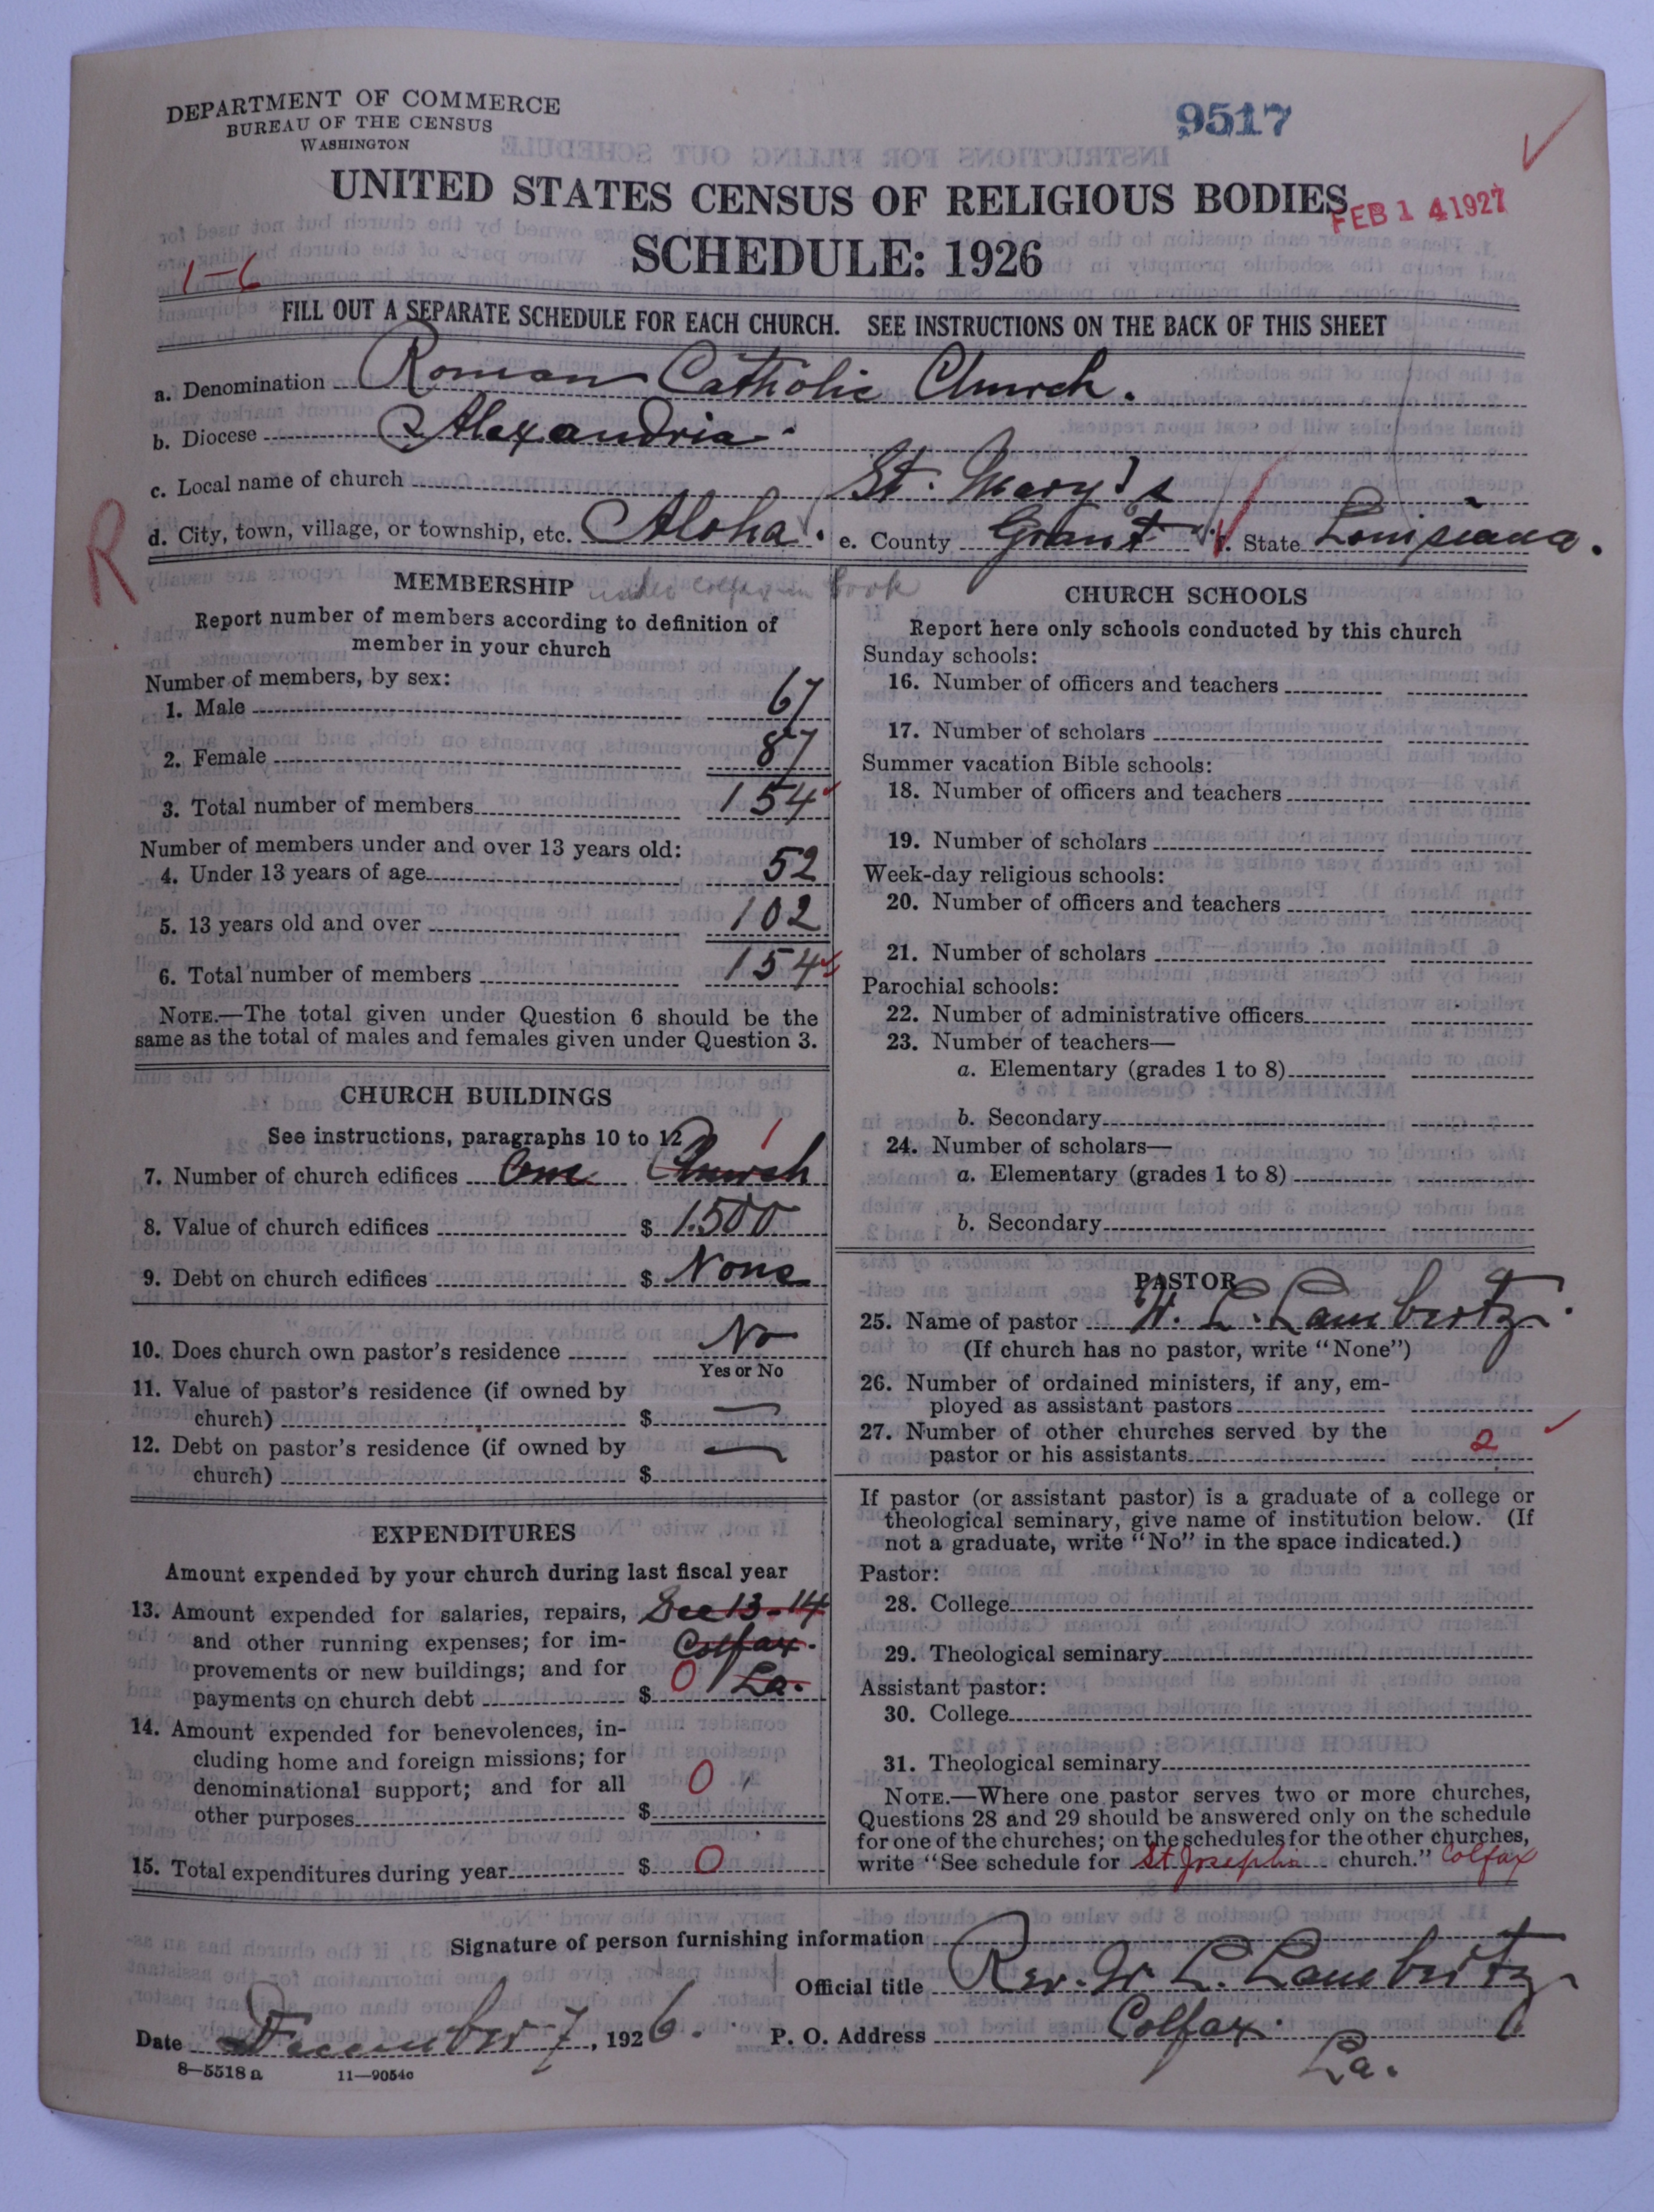 DEPARTMENT OF COMMERCE
BUREAU OF THE CENSUS
WASHINGTON
9517
UNITED STATES CENSUS OF RELIGIOUS BODIES
FEB 14 1927
SCHEDULE: 1926
1-6
FILL OUT A SEPARATE SCHEDULE FOR EACH CHURCH. SEE INSTRUCTIONS ON THE BACK OF THIS SHEET
a. Denomination Roman Catholic Church.
b. Diocese Alexandria.
c. Local name of church St. Mary's
R
d. City, town, village, or township, etc. Aloha. e. County Grant f. State Louisiana.
MEMBERSHIP under Colfax in book
Report number of members according to definition of
member in your church
Number of members, by sex:
1. Male 67
2. Female 87
3. Total number of members 154
Number of members under and over 13 years old:
4. Under 13 years of age 52
5. 13 years old and over 102
6. Total number of members 154
NOTE.—The total given under Question 6 should be the
same as the total of males and females given under Question 3.
CHURCH BUILDINGS
See instructions, paragraphs 10 to 12
1
7. Number of church edifices One Church
8. Value of church edifices $ 1500
9. Debt on church edifices $ None
10. Does church own pastor's residence No
Yes or No
11. Value of pastor's residence (if owned by
church) $ —
12. Debt on pastor's residence (if owned by
church) $ —
EXPENDITURES
Amount expended by your church during last fiscal year
13. Amount expended for salaries, repairs, See 13-14
and other running expenses; for im- Colfax.
provements or new buildings; and for 0 La.
payments on church debt $
14. Amount expended for benevolences, in-
cluding home and foreign missions; for
denominational support; and for all 0
other purposes $
15. Total expenditures during year $ 0
CHURCH SCHOOLS
Report here only schools conducted by this church
Sunday schools:
16. Number of officers and teachers
17. Number of scholars
Summer vacation Bible schools:
18. Number of officers and teachers
19. Number of scholars
Week-day religious schools:
20. Number of officers and teachers
21. Number of scholars
Parochial schools:
22. Number of administrative officers
23. Number of teachers—
a. Elementary (grades 1 to 8)
b. Secondary
24. Number of scholars—
a. Elementary (grades 1 to 8)
b. Secondary
PASTOR
25. Name of pastor W. L. Lambertz.
(If church has no pastor, write "None")
26. Number of ordained ministers, if any, em-
ployed as assistant pastors
27. Number of other churches served by the
pastor or his assistants 2
If pastor (or assistant pastor) is a graduate of a college or
theological seminary, give name of institution below. (If
not a graduate, write "No" in the space indicated.)
Pastor:
28. College
29. Theological seminary
Assistant pastor:
30. College
31. Theological seminary
NOTE.—Where one pastor serves two or more churches,
Questions 28 and 29 should be answered only on the schedule
for one of the churches; on the schedules for the other churches,
write "See schedule for St Josephs church." Colfax
Signature of person furnishing information
Official title Rev. W. L. Lambertz
Date December 7, 1926. P. O. Address Colfax.
La.
8—5518 a 11—9054c